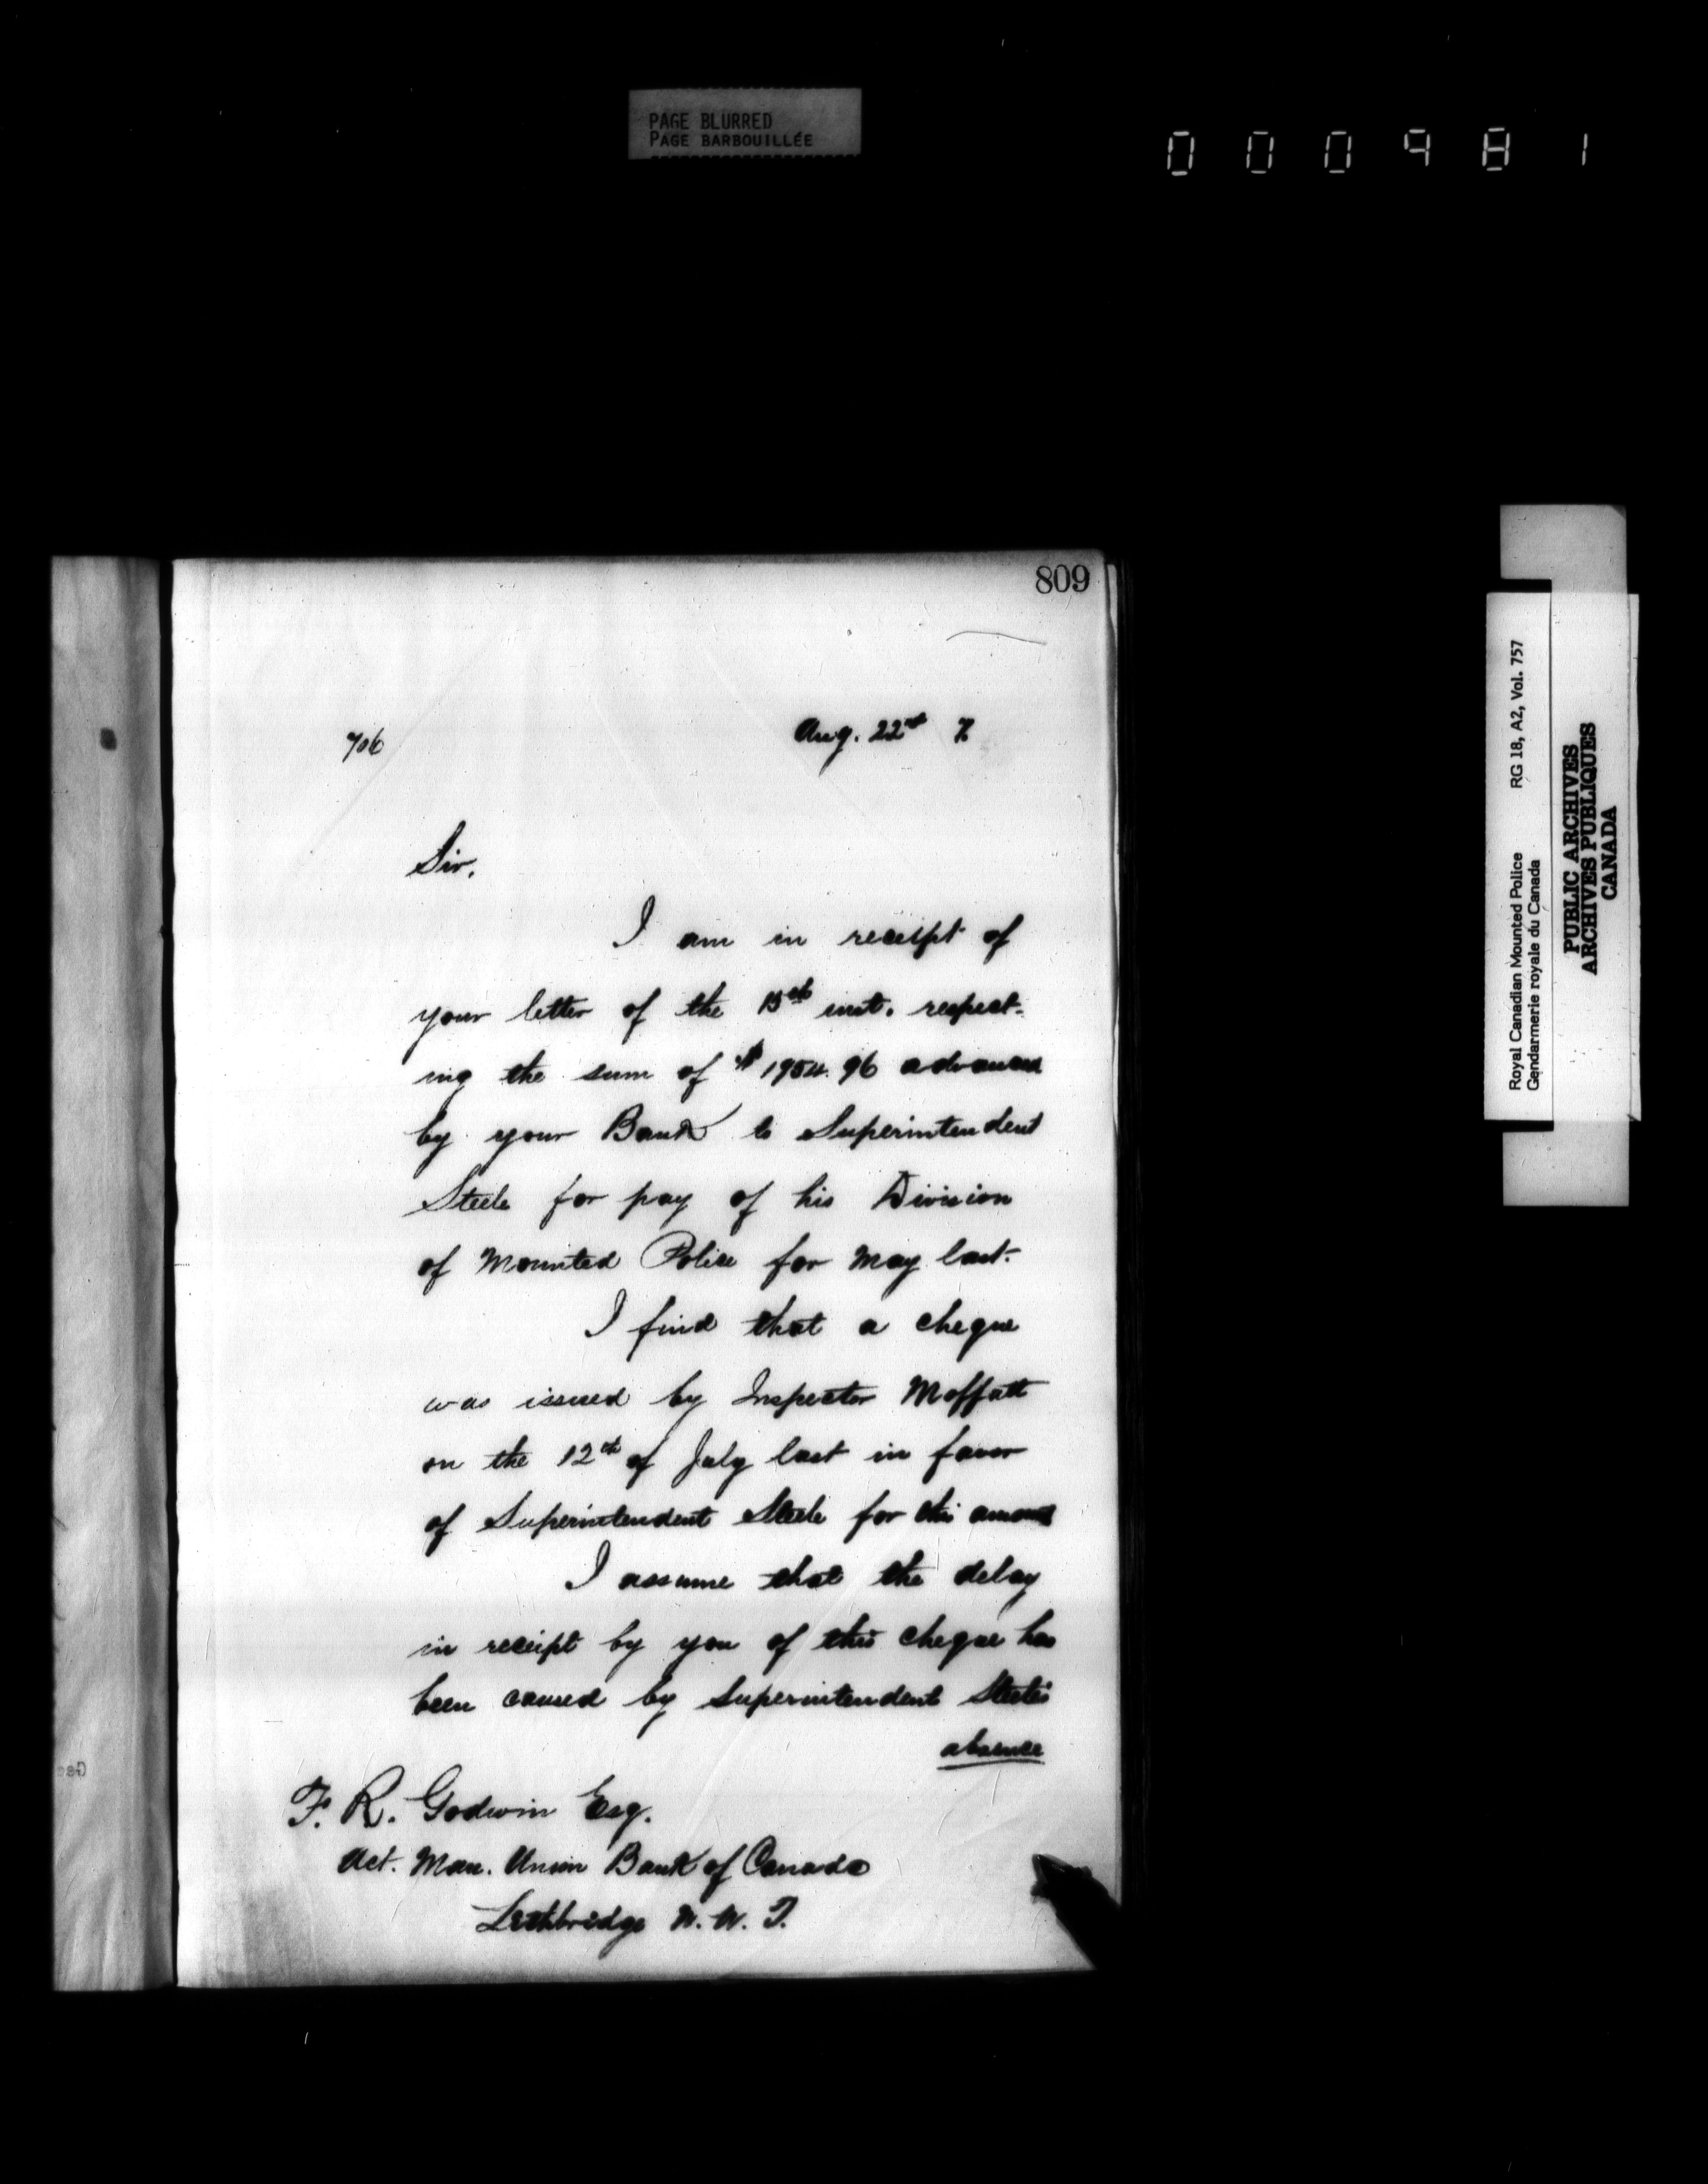 PAGE BLURRED
PAGE BARBOUILLÉE
000981
809
706 Aug. 22nd 7.
Sir,
I am in receipt of
your letter of the 15th inst. respect-
ing the sum of $1954.96 advanced
by your Bank to Superintendent
Steele for pay of his Division
of Mounted Police for May last.
I find that a cheque
was issued by Inspector Moffatt
on the 12th of July last in favor
of Superintendent Steele for this amount
I assume that the delay
in receipt by you of this cheque has
been caused by Superintendent Steele's
absence
F. R. Godwin Esq.
Act. Man. Union Bank of Canada
Lethbridge N. W. T.
Royal Canadian Mounted Police RG 18, A2, Vol. 757
Gendarmerie royale du Canada
PUBLIC ARCHIVES
ARCHIVES PUBLIQUES
CANADA